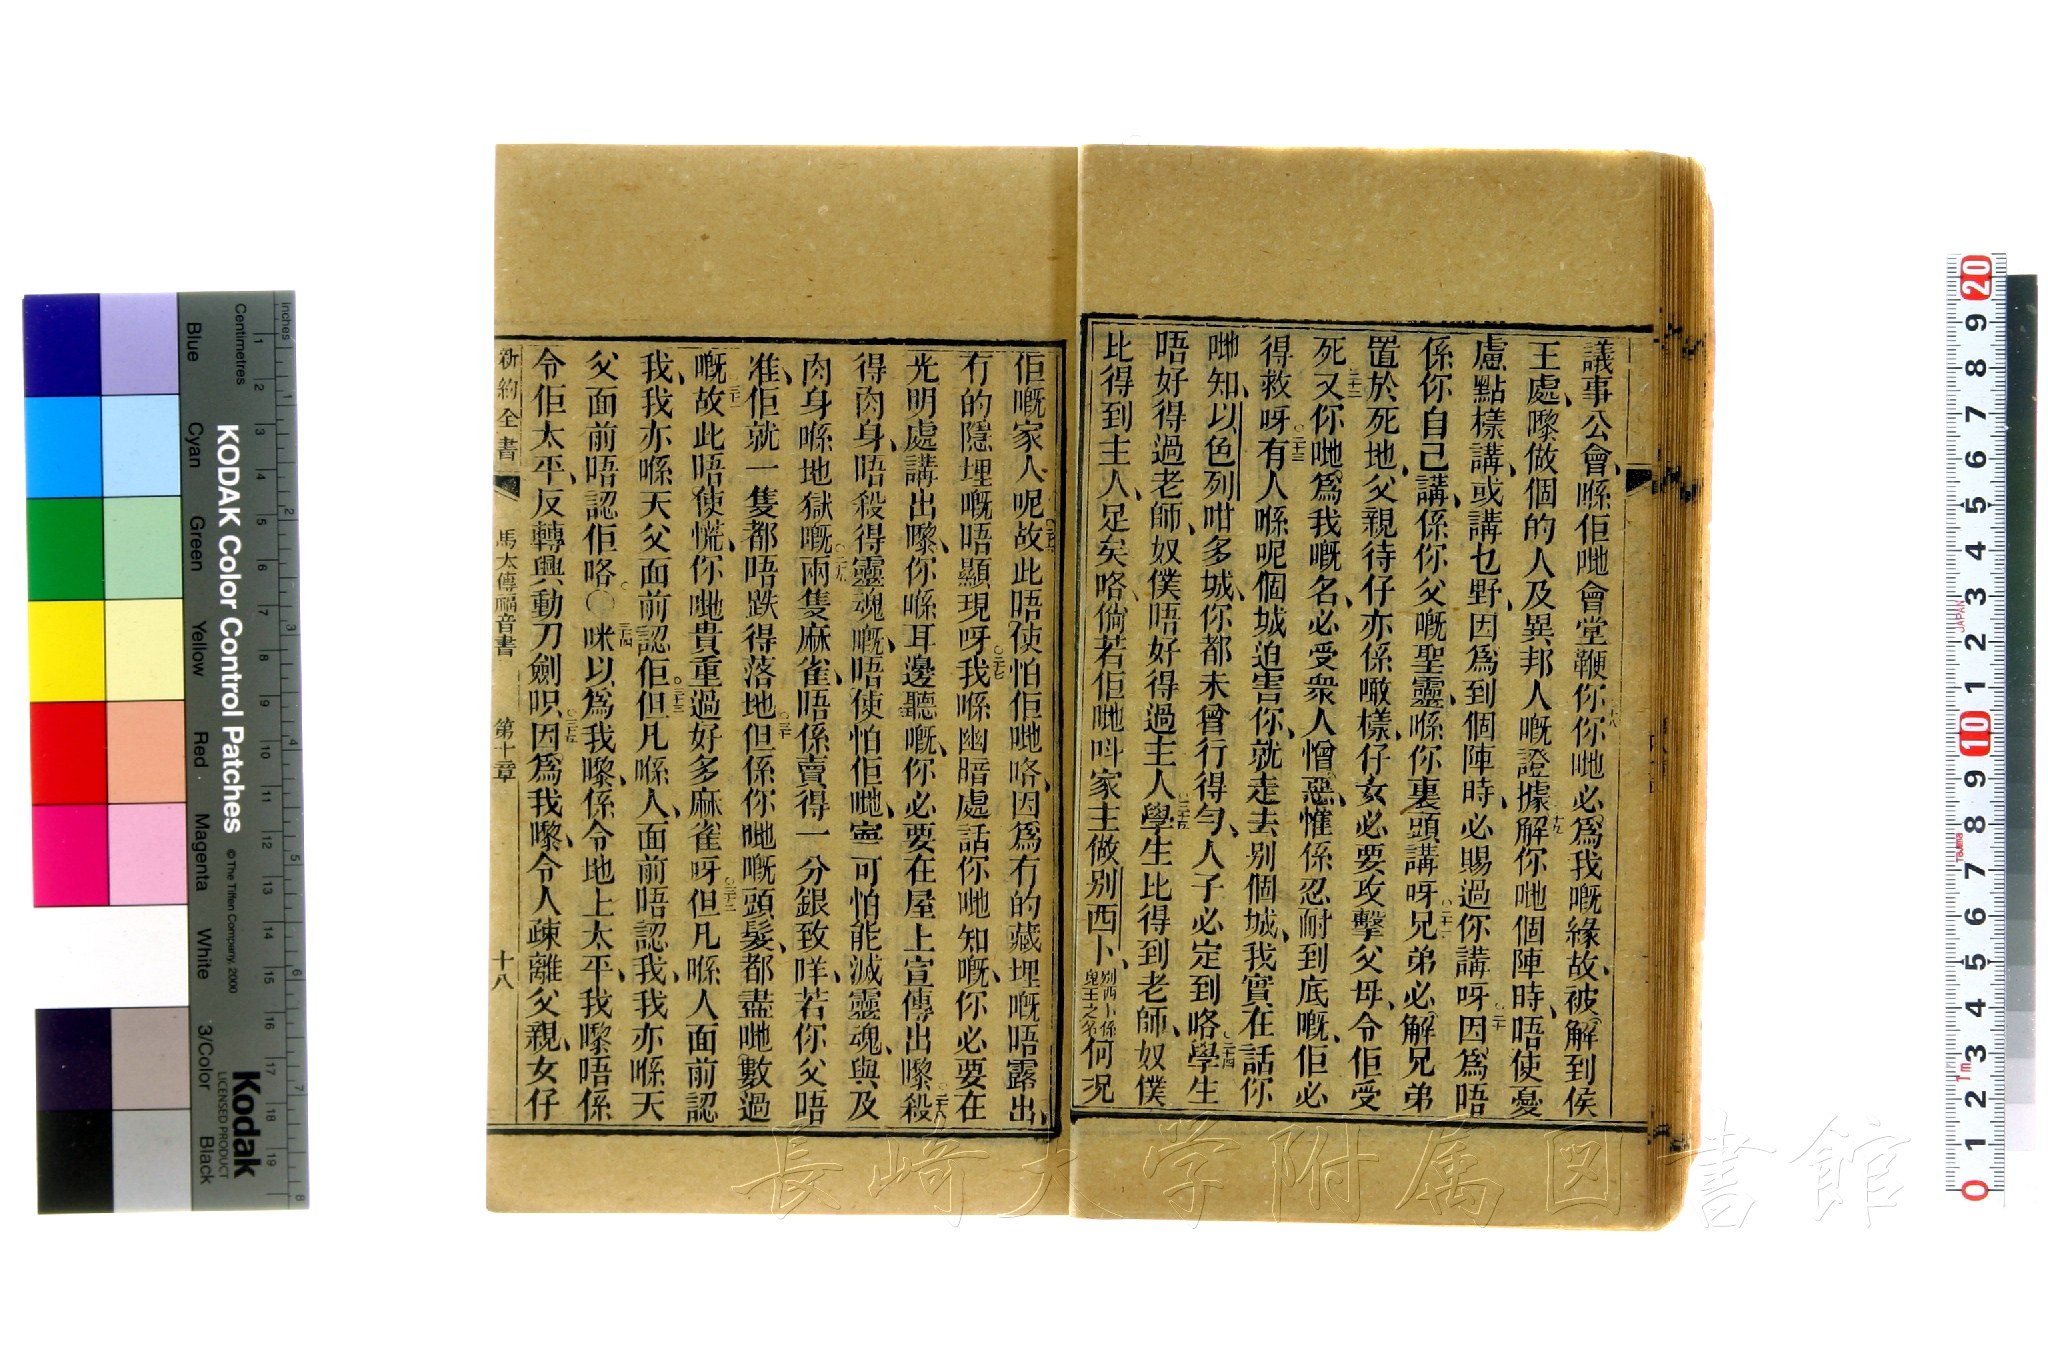 議事公會、喺佢哋會堂鞭你、你哋必為我嘅緣故、被解到侯
王處嚟、做個的人、及異邦人嘅證據、解你哋個陣時、唔使憂
慮點樣講、或講乜野、因為到個陣時、必賜過你講呀、因為唔
係你自己講、係你父嘅聖靈、喺你裏頭講呀、兄弟必解兄弟
置於死地、父親待仔亦係噉樣、仔女必要攻擊父母、令佢受
死、又你哋為我嘅名、必受衆人憎惡、惟係忍耐到底嘅、佢必
得救呀、有人喺呢個城廹害你、就走去別個城、我實在話你
哋知、以色列咁多城、你都未曾行得勻、人子必定到咯、學生
唔好得過老師、奴僕唔好得過主人、學生比得到老師、奴僕
比得到主人、足矣咯、倘若佢哋呌家主做別西卜、別西卜係鬼王之名何况
佢嘅家人呢、故此唔使怕佢哋咯、因為冇的藏埋嘅唔露出、
冇的隱埋嘅唔顯現呀、我喺幽暗處話你哋知嘅、你必要在
光明處講出嚟、你喺耳邊聽嘅、你必要在屋上宣傳出嚟、殺
得肉身、唔殺得靈魂嘅、唔使怕佢哋、寧可怕能滅靈魂、與及
肉身喺地獄嘅、兩隻麻雀、唔係賣得一分銀致咩、若你父唔
准、佢就一隻都唔跌得落地、但係你哋嘅頭髮、都盡哋數過
嘅、故此唔使慌、你哋貴重過好多麻雀呀、但凡喺人面前認
我、我亦喺天父面前認佢、但凡喺人面前唔認我、我亦喺天
父面前唔認佢咯〇咪以為我嚟、係令地上太平、我嚟唔係
令佢太平、反轉興動刀劍呮、因為我嚟、令人疎離父親、女仔
新約全書 馬太傳福音書 第十章 十八
KODAK Color Control Patches
© The Tiffen Company, 2000
Kodak
LICENSED PRODUCT
Inches
Centimetres
Blue Cyan Green Yellow Red Magenta White 3/Color Black
1 2 3 4 5 6 7 8
1 2 3 4 5 6 7 8 9 10 11 12 13 14 15 16 17 18 19
20 9 8 7 6 5 4 3 2 1 10 9 8 7 6 5 4 3 2 1 0
JAPAN
1m
長崎大学附属図書館